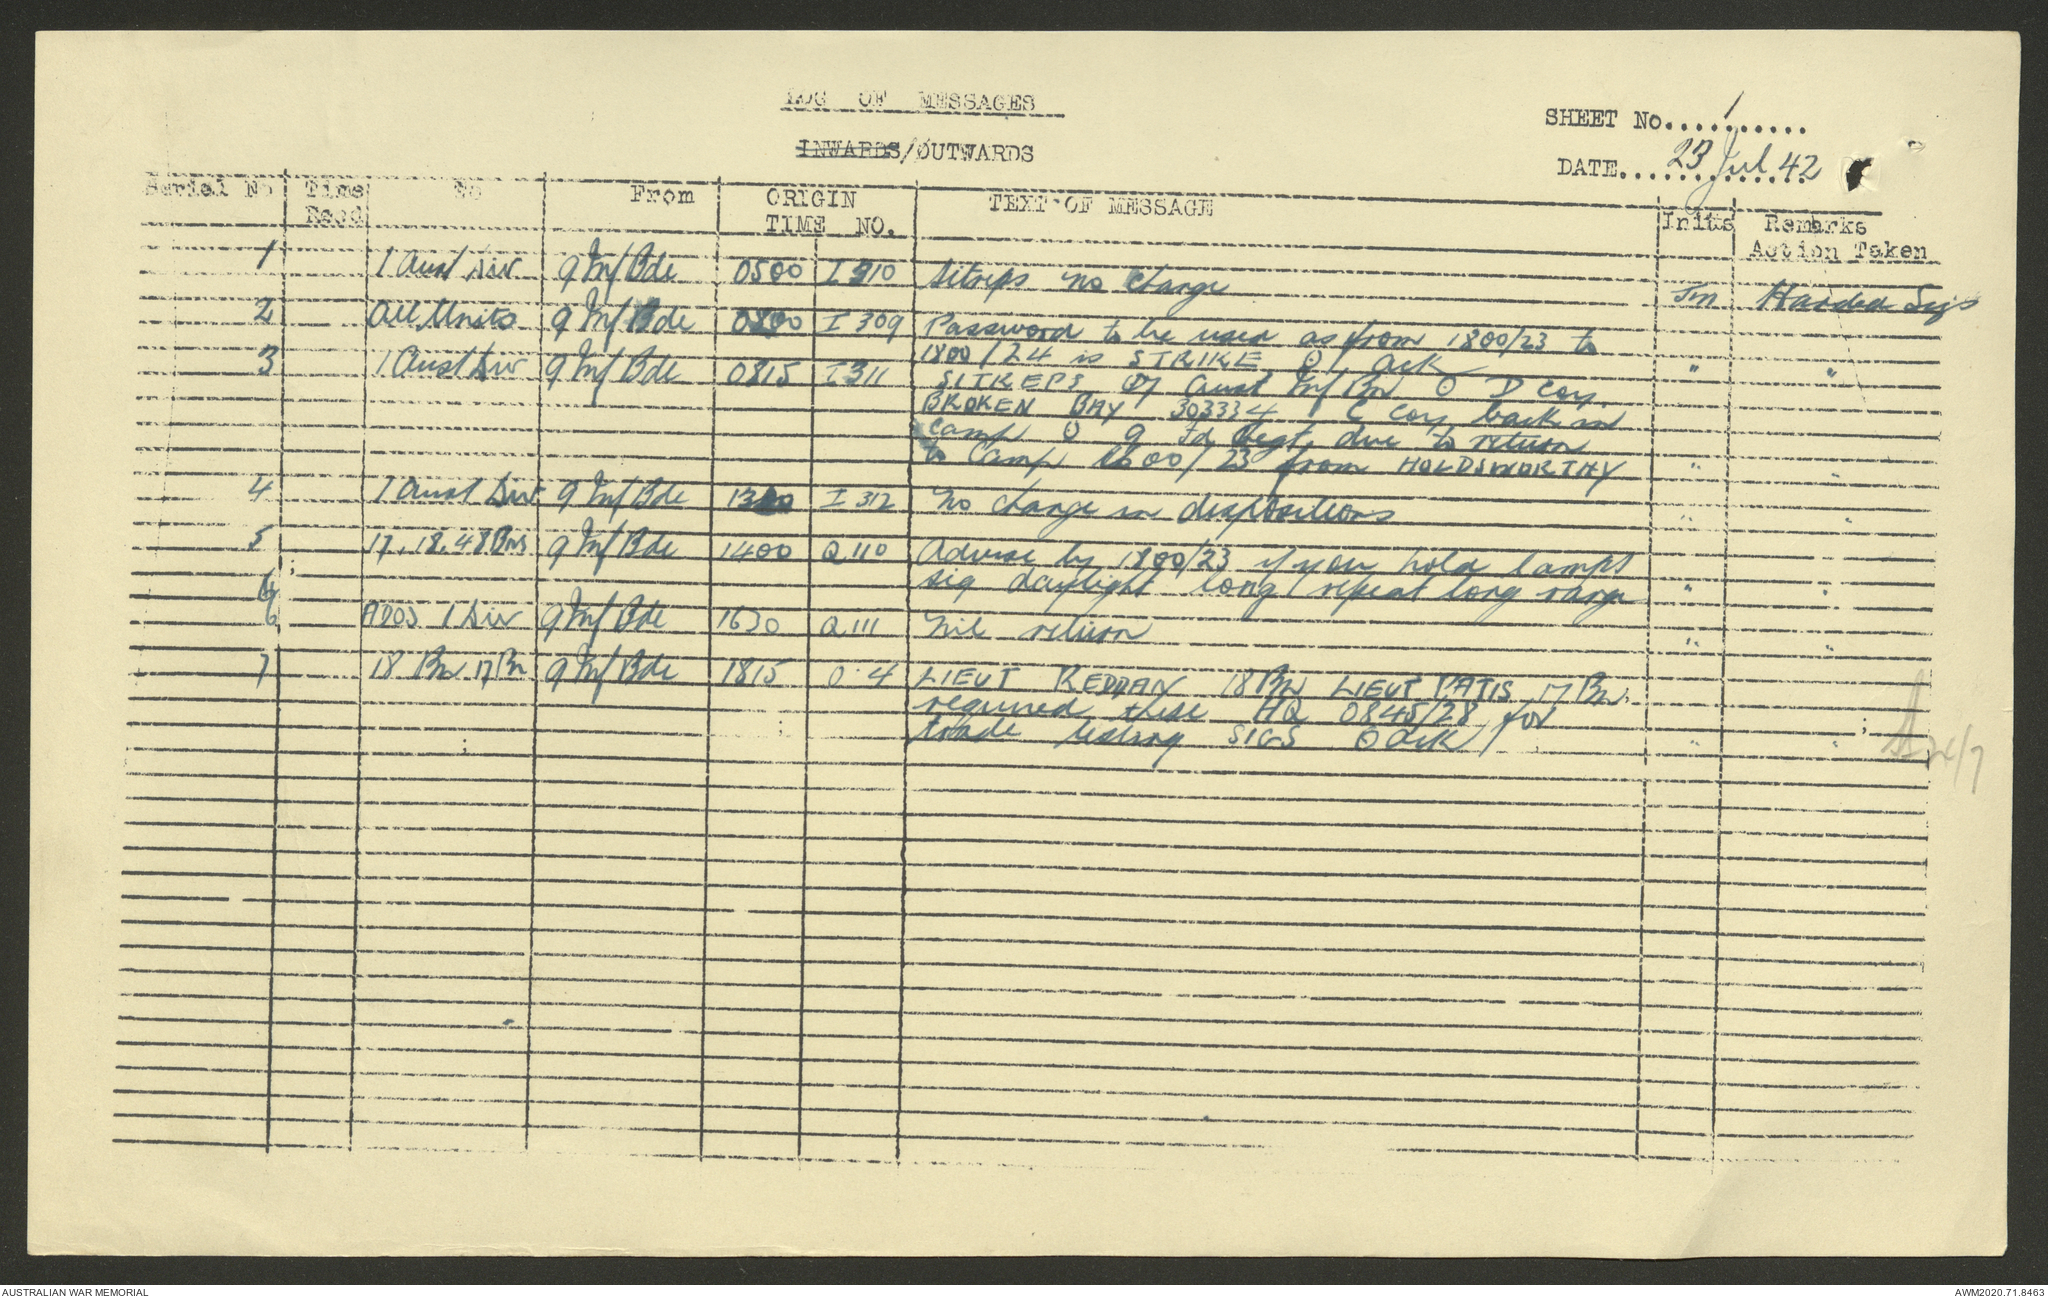 LOG OF MESSAGES
INWARDS/OUTWARDS
SHEET No..........1
DATE..............23 Jul 42
Serial No Time Recd To From ORIGIN TIME NO. TEXT OF MESSAGE Initls Remarks Action Taken
1 1 Aust Div 9 Inf Bde 0500 I 310 Sitreps no change Jm Handed Sigs
2 All Units 9 Inf Bde 0800 I 309 Password to be used as from 1800/23 to
1800/24 is STRIKE ʘ ack " "
3 1 Aust Div 9 Inf Bde 0815 I 311 SITREPS Aust Inf Bn ʘ D coy.
BROKEN BAY 303334 C coy back in
camp ʘ 9 Fd Regt. due to return
to camp 1600/23 from HOLDSWORTHY "
4 1 Aust Div 9 Inf Bde I 312 No change in dispositions " "
5 17. 18. 48 Bns 9 Inf Bde 1400 Q 110 Advise by 1800/23 if you hold lamps
sig daylight long repeat long range " "
6 ADOS 1 Div 9 Inf Bde 1630 Q 111 Nil return " "
7 18 Bn 17 Bn 9 Inf Bde 1815 O 4 LIEUT REDDAN 18 Bn LIEUT VATIS 17 Bn
required these HQ 0845/28 for
trade testing SIGS ʘ ack " "
24/7
AUSTRALIAN WAR MEMORIAL
AWM2020.71.8463